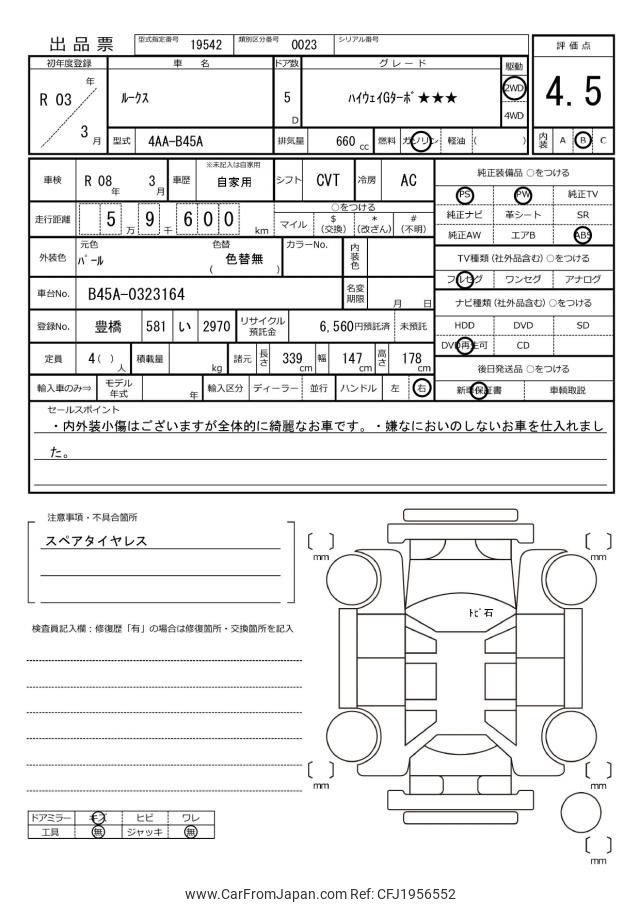 出品票
型式指定番号 19542 類別区分番号 0023 シリアル番号
評価点
4.5
内装 A B C
初年度登録 車名 ドア数 グレード 駆動
R 03 年 3 月
ルークス 5 D ハイウェイGターボ★★★ 2WD 4WD
型式 4AA-B45A 排気量 660 cc 燃料 ガソリン 軽油 ( )
車検 R 08 年 3 月 車歴 ※未記入は自家用 自家用 シフト CVT 冷房 AC
走行距離 5 9 万 千 6 0 0 km
○をつける
マイル $ (交換) * (改ざん) # (不明)
外装色 元色 パール 色替 色替無 ( ) カラーNo. 内装色
車台No. B45A-0323164 名変期限 月 日
登録No. 豊橋 581 い 2970 リサイクル預託金 6,560円預託済 未預託
定員 4 ( ) 人 積載量 kg 諸元 長さ 339 cm 幅 147 cm 高さ 178 cm
輸入車のみ⇒ モデル年式 年 輸入区分 ディーラー 並行 ハンドル 左 右
純正装備品 ○をつける
PS PW 純正TV
純正ナビ 革シート SR
純正AW エアB ABS
TV種類(社外品含む) ○をつける
フルセグ ワンセグ アナログ
ナビ種類(社外品含む) ○をつける
HDD DVD SD
DVD再生可 CD
後日発送品 ○をつける
新車保証書 車輌取説
セールスポイント
・内外装小傷はございますが全体的に綺麗なお車です。・嫌なにおいのしないお車を仕入れまし
た。
注意事項・不具合箇所
スペアタイヤレス
検査員記入欄:修復歴「有」の場合は修復箇所・交換箇所を記入
ドアミラー キズ ヒビ ワレ
工具 無 ジャッキ 無
mm
mm
トビ石
mm
mm
mm
www.CarFromJapan.com Ref: CFJ1956552